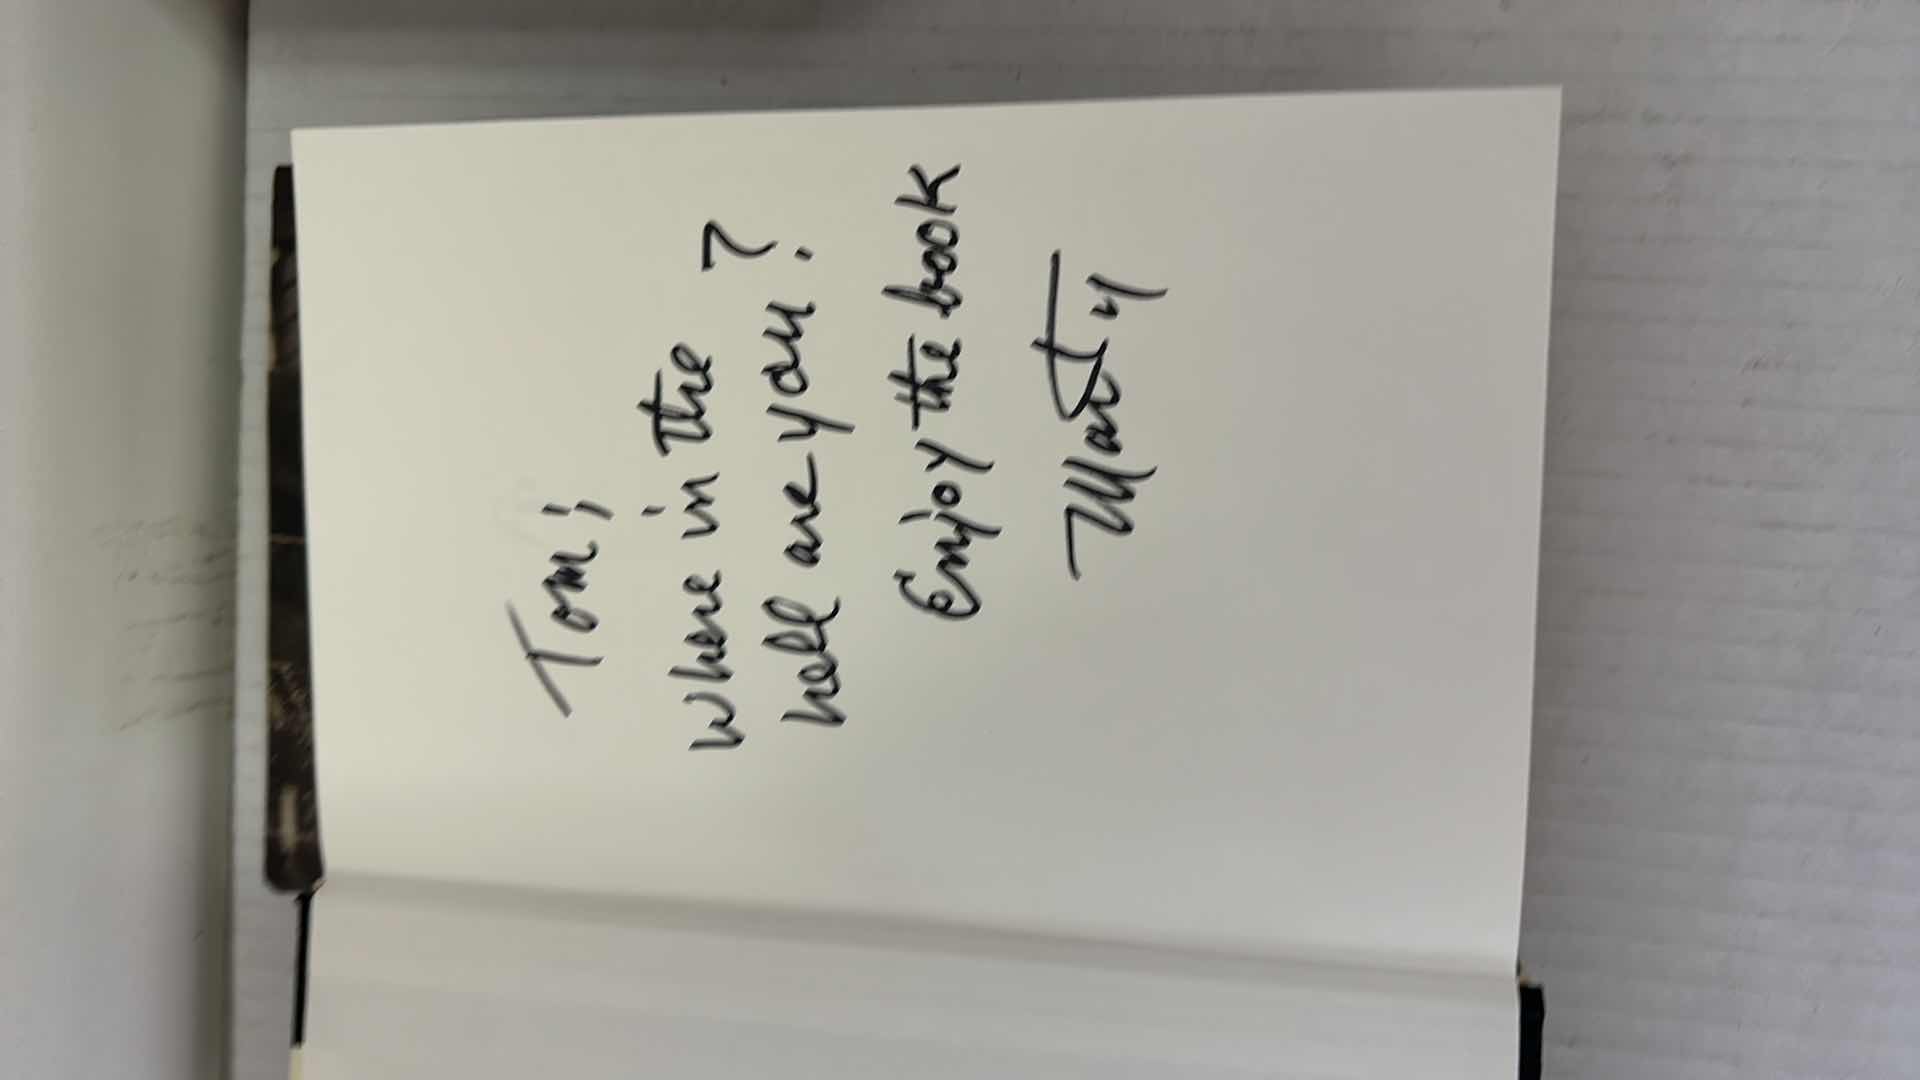 Tom;
where in the
hell are you?
Enjoy the book
Marty